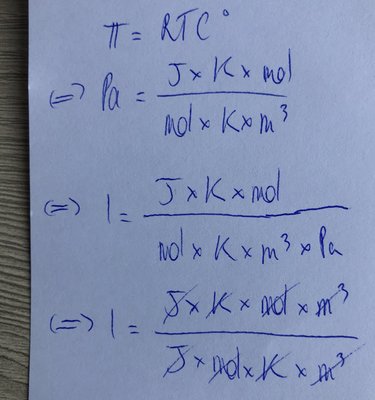 π = RTC°
<=> Pa = J × K × mol
mol × K × m³
<=> 1 = J × K × mol
mol × K × m³ × Pa
<=> 1 = J × K × mol × m³
J × mol × K × m³